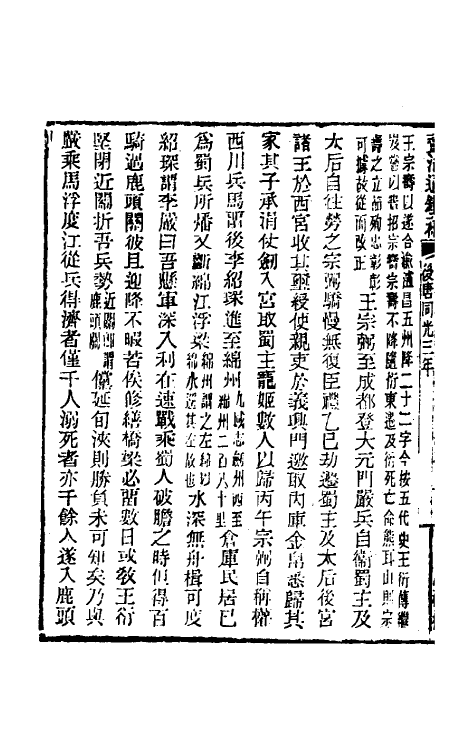 資治通鑑補 後唐同光三年
王宗壽以遂合渝瀘昌五州降二十二字今按五代史王衍傳繼
岌嘗以書招宗壽宗壽不降隨衍東遷及衍死亡命熊耳山則宗
壽之立節殉忠彰彰
可據故從而改正
王宗弼至成都登大元門嚴兵自衛蜀主及
太后自往勞之宗弼驕慢無復臣禮乙巳劫遷蜀主及太后後宮
諸王於西宮收其璽綬使親吏於義興門邀取內庫金帛悉歸其
家其子承涓仗劍入宮取蜀主寵姬數人以歸丙午宗弼自稱權
西川兵馬留後李紹琛進至綿州九域志劍州西至綿州二百八十里倉庫民居已
為蜀兵所燔又斷綿江浮梁綿州謂之左綿以綿水逕其左故也水深無舟楫可度
紹琛謂李嚴曰吾懸軍深入利在速戰乘蜀人破膽之時但得百
騎過鹿頭關彼且迎降不暇若俟修繕橋梁必留數日或教王衍
堅閉近關折吾兵勢近關即謂鹿頭關儻延旬浹則勝負未可知矣乃與
嚴乘馬浮度江從兵得濟者僅千人溺死者亦千餘人遂入鹿頭